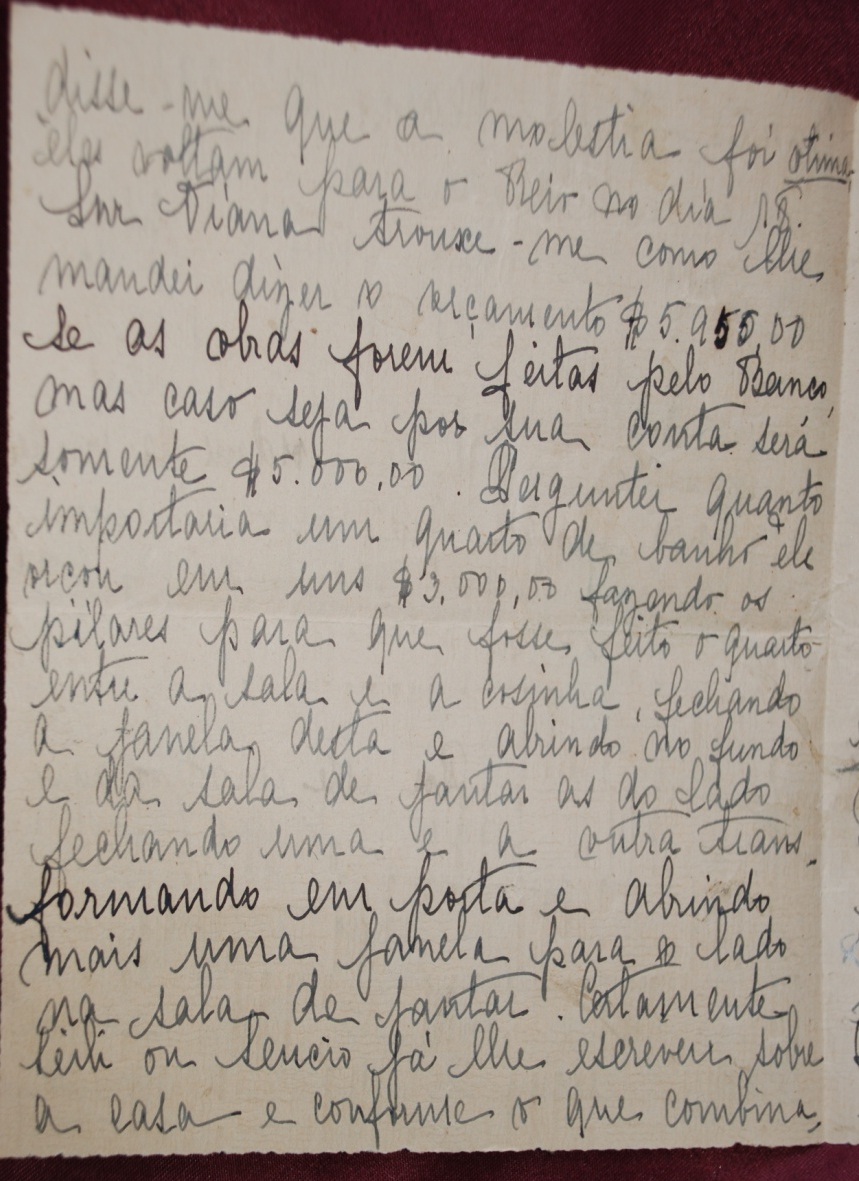 disse-me que a molestia foi otima,
eles voltam para o Reio no dia 18.
Snr Viana trouxe-me como lhe
mandei dizer o orçamento $5.955,00
se as obras forem feitas pelo Banco,
mas caso seja por sua conta será
somente $5.000,00. Perguntei quanto
importaria um quarto de banho e ele
orçou em uns $3.000,00 fazendo os
pilares para que fosse feito o quarto
entre a sala e a cosinha, fechando
a janela desta e abrindo no fundo
e da sala de jantar as do lado
fechando uma e a outra trans-
formando em porta e abrindo
mais uma janela para o lado
na sala de jantar. Certamente
ou já lhe escreveu sobre
a casa e conforme o que combina,